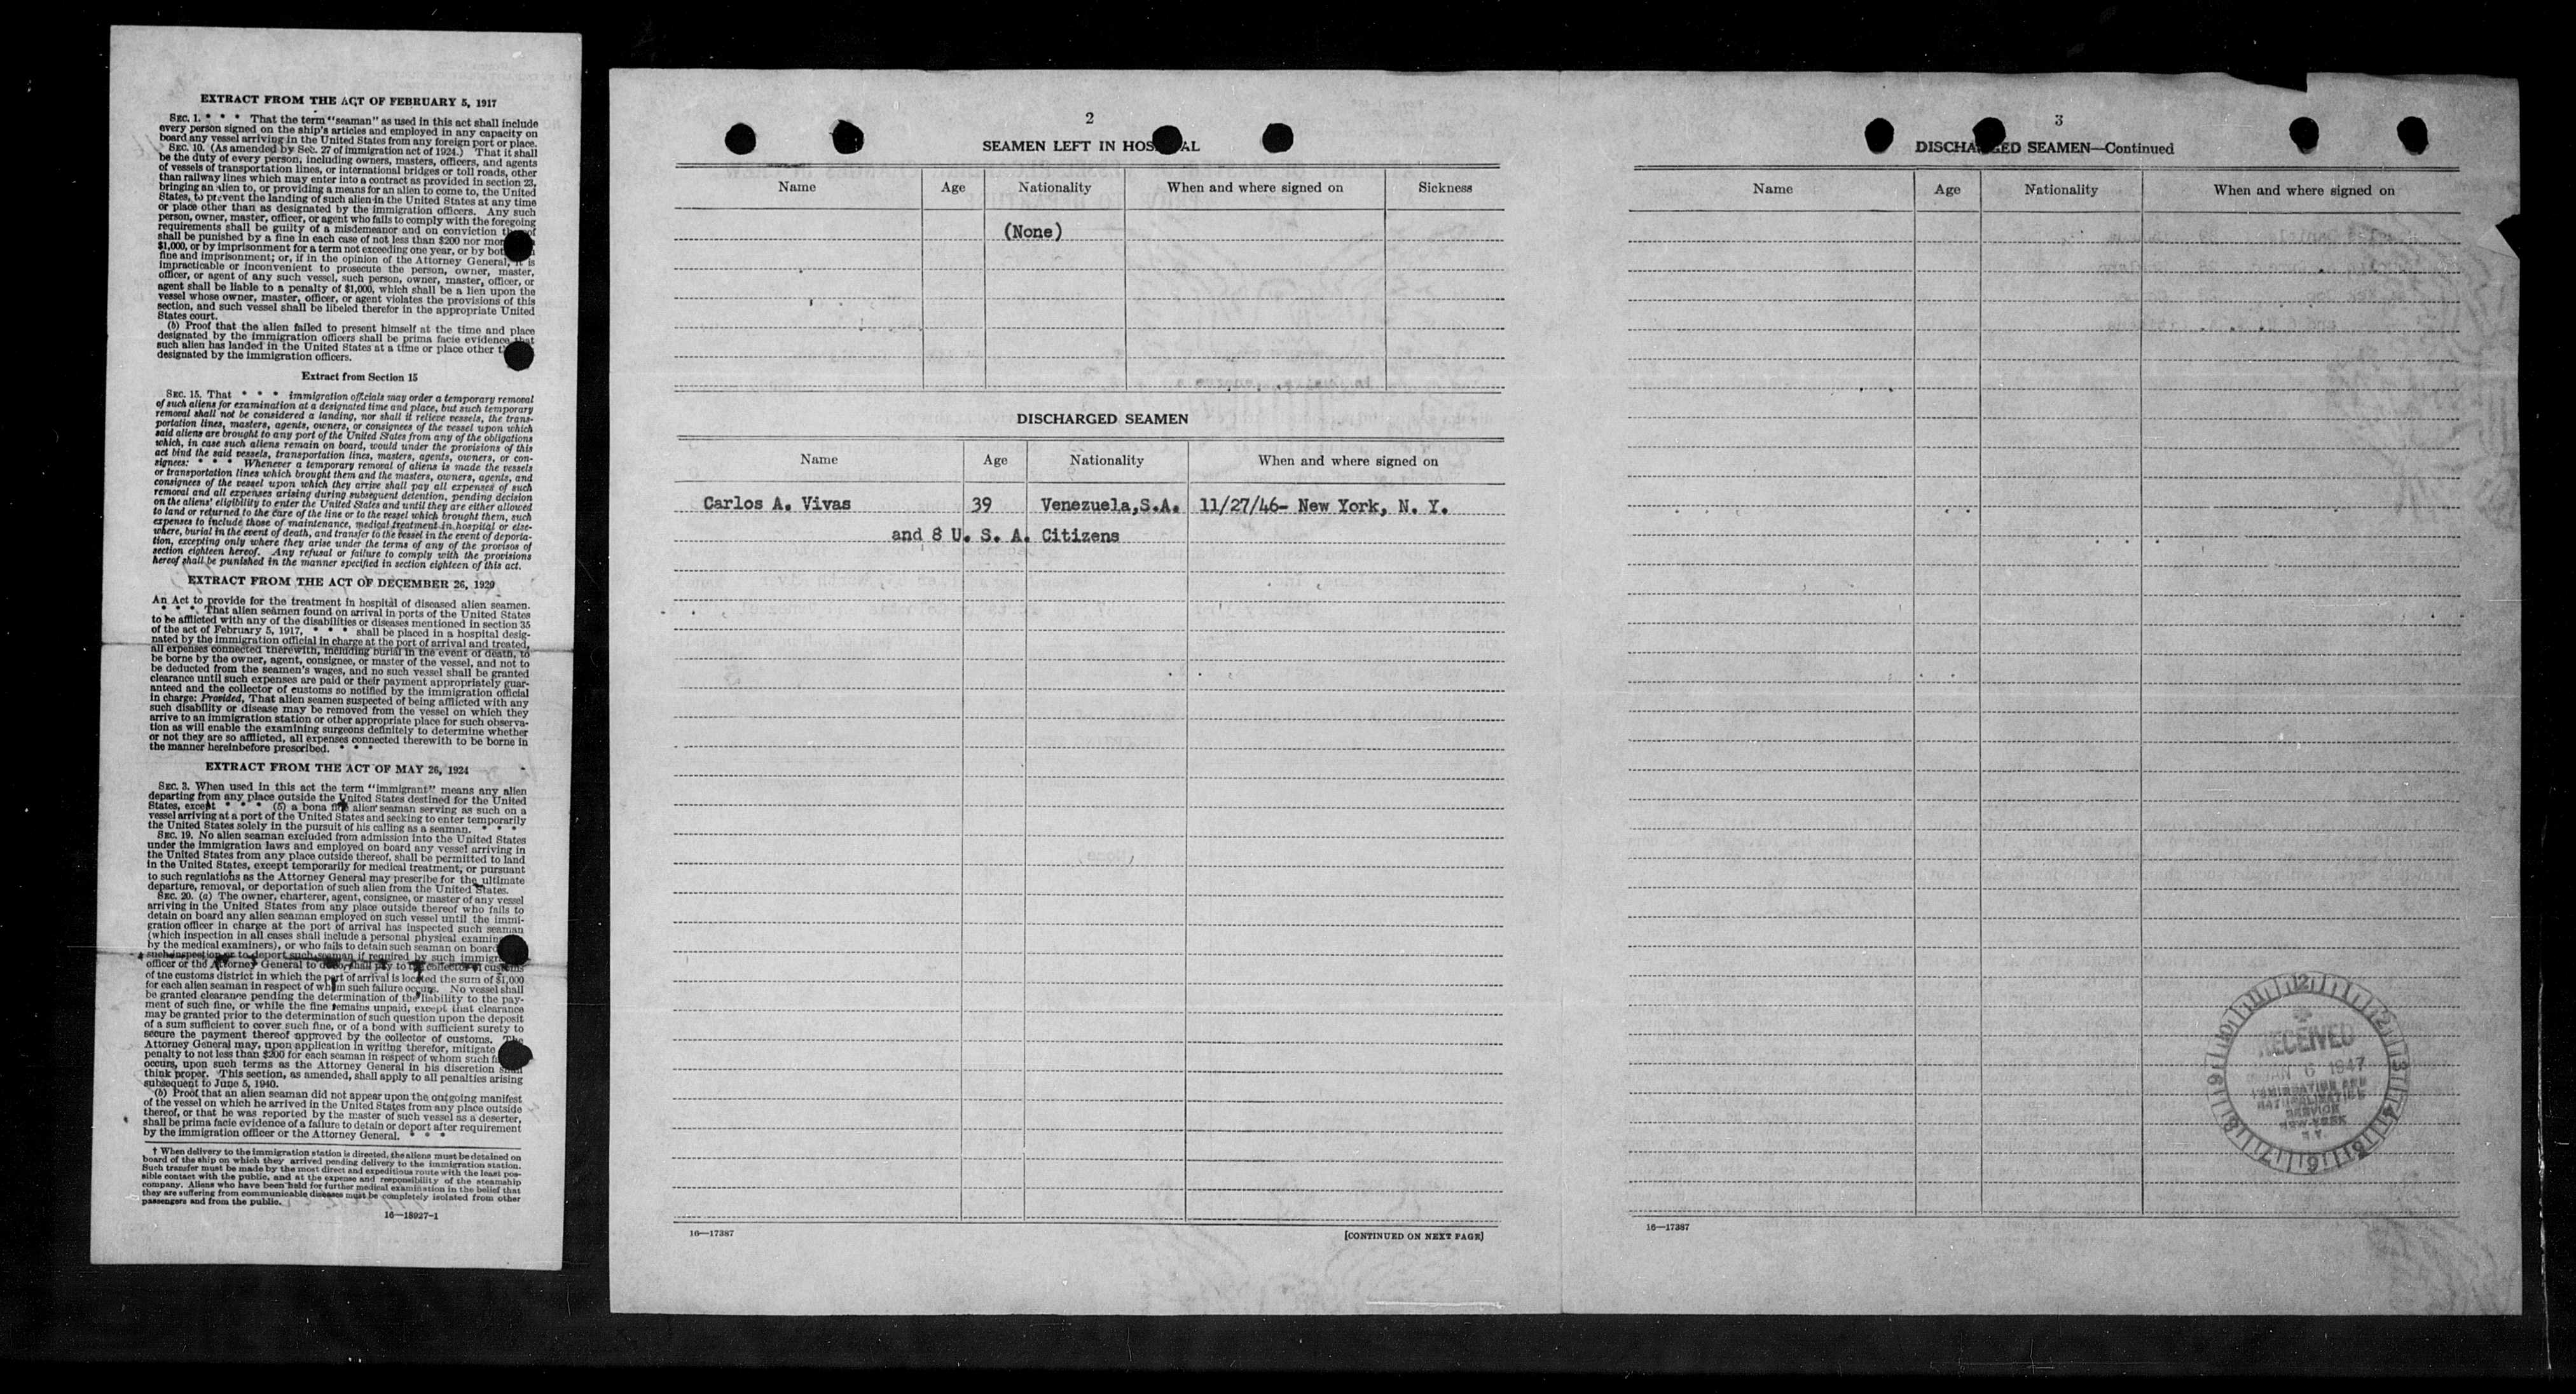 EXTRACT FROM THE ACT OF FEBRUARY 5, 1917
SEC. 1. * * * That the term "seaman" as used in this act shall include
every person signed on the ship's articles and employed in any capacity on
board any vessel arriving in the United States from any foreign port or place.
SEC. 10. (As amended by Sec. 27 of immigration act of 1924.) That it shall
be the duty of every person, including owners, masters, officers, and agents
of vessels of transportation lines, or international bridges or toll roads, other
than railway lines which may enter into a contract as provided in section 23,
bringing an alien to, or providing a means for an alien to come to, the United
States, to prevent the landing of such alien in the United States at any time
or place other than as designated by the immigration officers. Any such
person, owner, master, officer, or agent who fails to comply with the foregoing
requirements shall be guilty of a misdemeanor and on conviction
shall be punished by a fine in each case of not less than $200 nor
$1,000, or by imprisonment for a term not exceeding one year, or by
fine and imprisonment; or, if in the opinion of the Attorney General, it is
impracticable or inconvenient to prosecute the person, owner, master,
officer, or agent of any such vessel, such person, owner, master, officer, or
agent shall be liable to a penalty of $1,000, which shall be a lien upon the
vessel whose owner, master, officer, or agent violates the provisions of this
section, and such vessel shall be libeled therefor in the appropriate United
States court.
(b) Proof that the alien failed to present himself at the time and place
designated by the immigration officers shall be prima facie evidence that
such alien has landed in the United States at a time or place other
designated by the immigration officers.
Extract from Section 15
SEC. 15. That * * * immigration officials may order a temporary removal
of such aliens for examination at a designated time and place, but such temporary
removal shall not be considered a landing, nor shall it relieve vessels, the trans-
portation lines, masters, agents, owners, or consignees of the vessel upon which
said aliens are brought to any port of the United States from any of the obligations
which, in case such aliens remain on board, would under the provisions of this
act bind the said vessels, transportation lines, masters, agents, owners, or con-
signees: * * * Whenever a temporary removal of aliens is made the vessels
or transportation lines which brought them and the masters, owners, agents, and
consignees of the vessel upon which they arrive shall pay all expenses of such
removal and all expenses arising during subsequent detention, pending decision
on the aliens' eligibility to enter the United States and until they are either allowed
to land or returned to the care of the line or to the vessel which brought them, such
expenses to include those of maintenance, medical treatment in hospital or else-
where, burial in the event of death, and transfer to the vessel in the event of deporta-
tion, excepting only where they arise under the terms of any of the provisos of
section eighteen hereof. Any refusal or failure to comply with the provisions
hereof shall be punished in the manner specified in section eighteen of this act.
EXTRACT FROM THE ACT OF DECEMBER 26, 1920
An Act to provide for the treatment in hospital of diseased alien seamen.
* * * That alien seamen found on arrival in ports of the United States
to be afflicted with any of the disabilities or diseases mentioned in section 35
of the act of February 5, 1917, * * * shall be placed in a hospital desig-
nated by the immigration official in charge at the port of arrival and treated,
all expenses connected therewith, including burial in the event of death, to
be borne by the owner, agent, consignee, or master of the vessel, and not to
be deducted from the seamen's wages, and no such vessel shall be granted
clearance until such expenses are paid or their payment appropriately guar-
anteed and the collector of customs so notified by the immigration official
in charge: Provided, That alien seamen suspected of being afflicted with any
such disability or disease may be removed from the vessel on which they
arrive to an immigration station or other appropriate place for such observa-
tion as will enable the examining surgeons definitely to determine whether
or not they are so afflicted, all expenses connected therewith to be borne in
the manner hereinbefore prescribed. * * *
EXTRACT FROM THE ACT OF MAY 26, 1924
SEC. 3. When used in this act the term "immigrant" means any alien
departing from any place outside the United States destined for the United
States, except * * * (5) a bona fide alien seaman serving as such on a
vessel arriving at a port of the United States and seeking to enter temporarily
the United States solely in the pursuit of his calling as a seaman. * * *
SEC. 19. No alien seaman excluded from admission into the United States
under the immigration laws and employed on board any vessel arriving in
the United States from any place outside thereof, shall be permitted to land
in the United States, except temporarily for medical treatment, or pursuant
to such regulations as the Attorney General may prescribe for the ultimate
departure, removal, or deportation of such alien from the United States.
SEC. 20. (a) The owner, charterer, agent, consignee, or master of any vessel
arriving in the United States from any place outside thereof who fails to
detain on board any alien seaman employed on such vessel until the immi-
gration officer in charge at the port of arrival has inspected such seaman
(which inspection in all cases shall include a personal physical
by the medical examiners), or who fails to detain such seaman on board
such inspection or to deport such seaman if required by such
officer or the Attorney General to deport, shall pay to the collector of customs
of the customs district in which the port of arrival is located the sum of $1,000
for each alien seaman in respect of whom such failure occurs. No vessel shall
be granted clearance pending the determination of the liability to the pay-
ment of such fine, or while the fine remains unpaid, except that clearance
may be granted prior to the determination of such question upon the deposit
of a sum sufficient to cover such fine, or of a bond with sufficient surety to
secure the payment thereof approved by the collector of customs. The
Attorney General may, upon application in writing therefor, mitigate
penalty to not less than $200 for each seaman in respect of whom such
occurs, upon such terms as the Attorney General in his discretion shall
think proper. This section, as amended, shall apply to all penalties arising
subsequent to June 5, 1940.
(b) Proof that an alien seaman did not appear upon the outgoing manifest
of the vessel on which he arrived in the United States from any place outside
thereof, or that he was reported by the master of such vessel as a deserter,
shall be prima facie evidence of a failure to detain or deport after requirement
by the immigration officer or the Attorney General. * * *
† When delivery to the immigration station is directed, the aliens must be detained on
board of the ship on which they arrived pending delivery to the immigration station.
Such transfer must be made by the most direct and expeditious route with the least pos-
sible contact with the public, and at the expense and responsibility of the steamship
company. Aliens who have been held for further medical examination in the belief that
they are suffering from communicable diseases must be completely isolated from other
passengers and from the public.
16—18927-1
2
SEAMEN LEFT IN HOSPITAL
Name Age Nationality When and where signed on Sickness
(None)
DISCHARGED SEAMEN
Name Age Nationality When and where signed on
Carlos A. Vivas 39 Venezuela,S.A. 11/27/46- New York, N. Y.
and 8 U. S. A. Citizens
16—17387
[CONTINUED ON NEXT PAGE]
3
DISCHARGED SEAMEN—Continued
Name Age Nationality When and where signed on
RECEIVED
JAN 6 1947
IMMIGRATION AND
NATURALIZATION
SERVICE
NEW YORK
N. Y.
12 1 2 3 4 5 6 7 8 9 10 11
16—17387